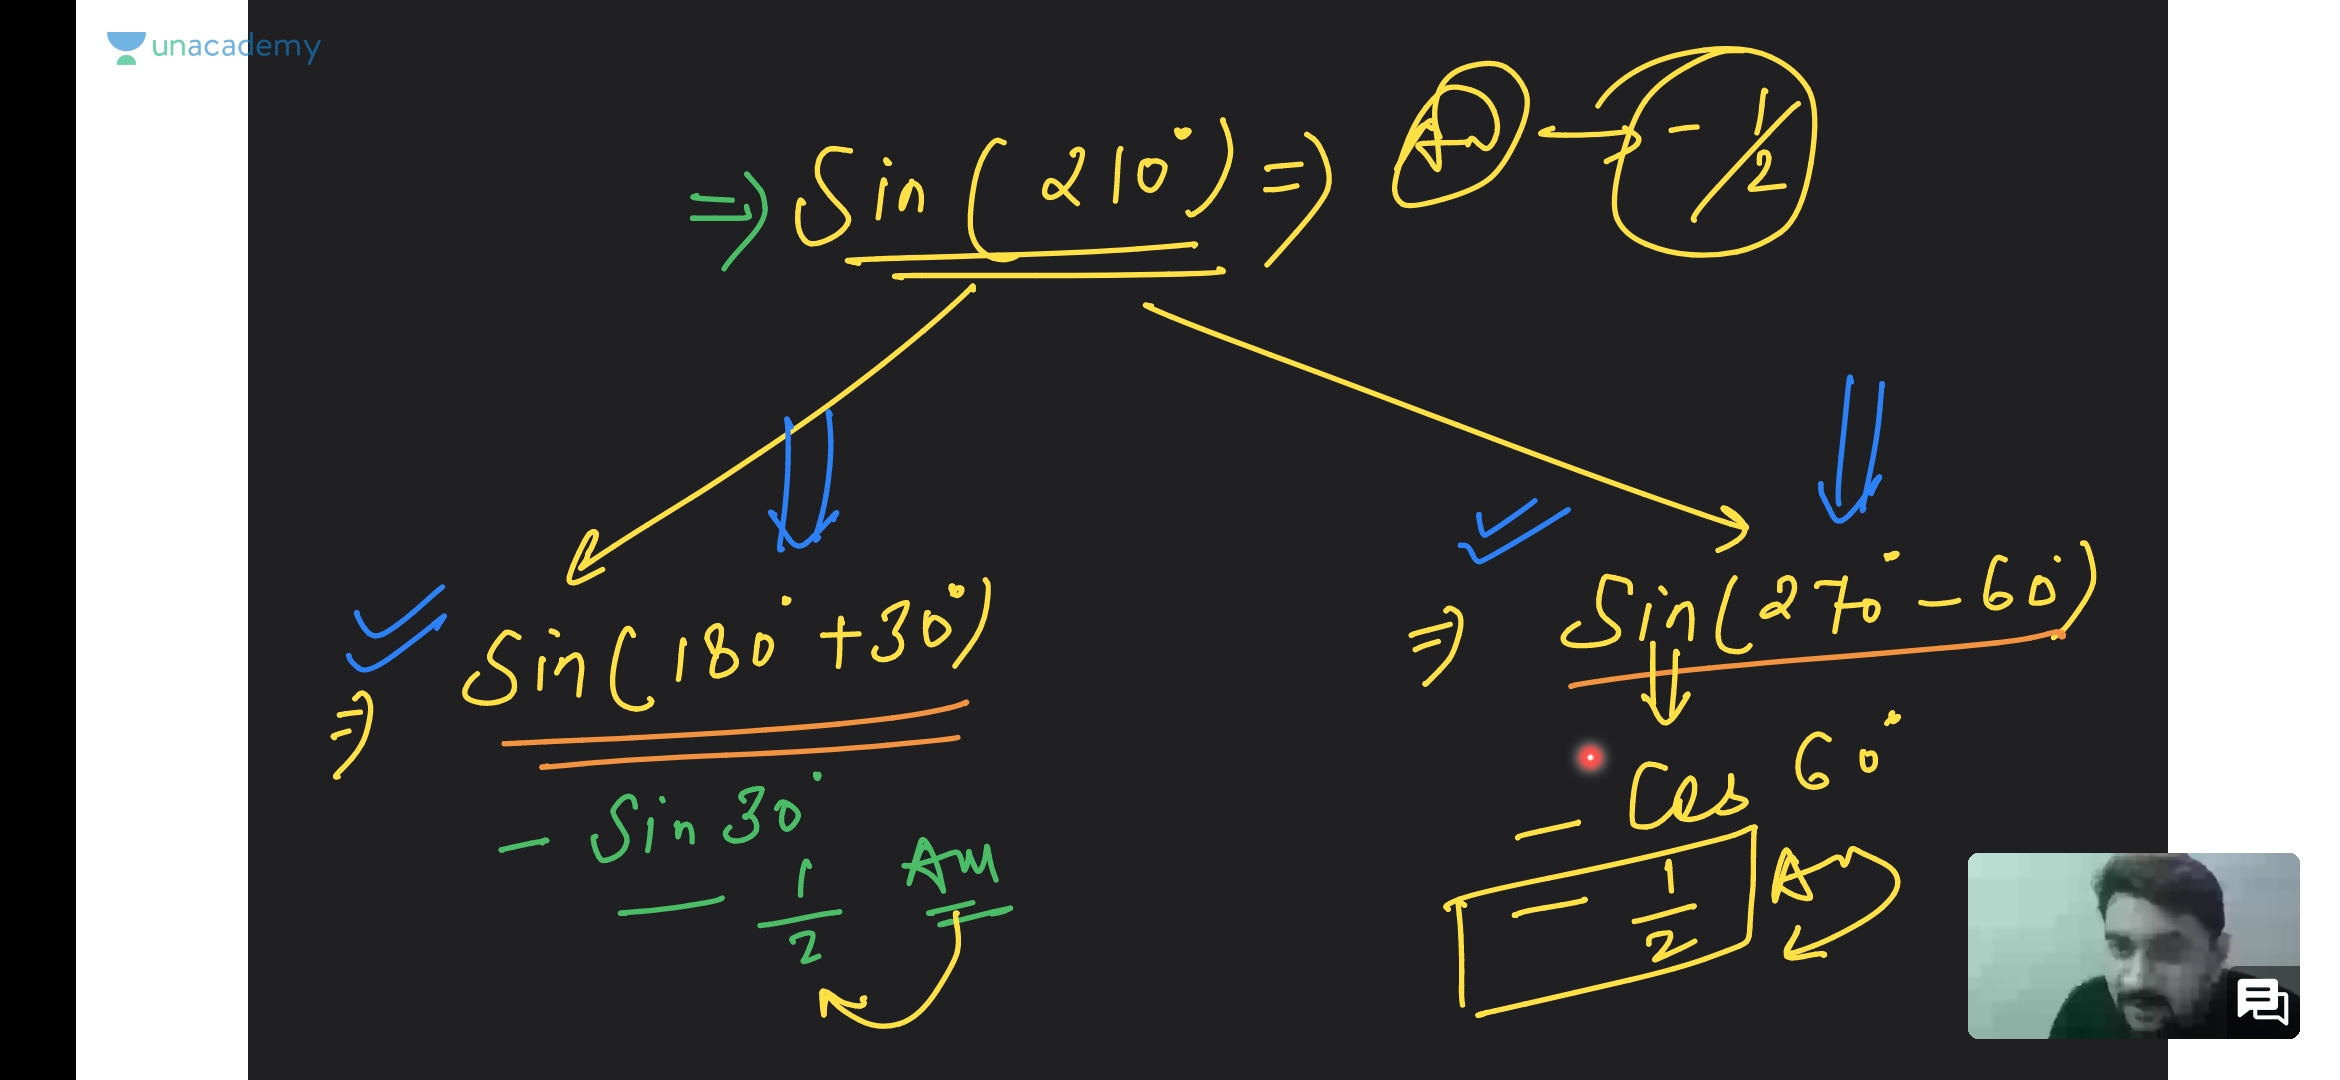 unacademy
⇒ Sin(210°) ⇒ An → -1/2
⇒ Sin(180°+30°)
- Sin 30°
- 1/2 Ans
⇒ Sin(270°-60°)
- Cos 60°
- 1/2 A